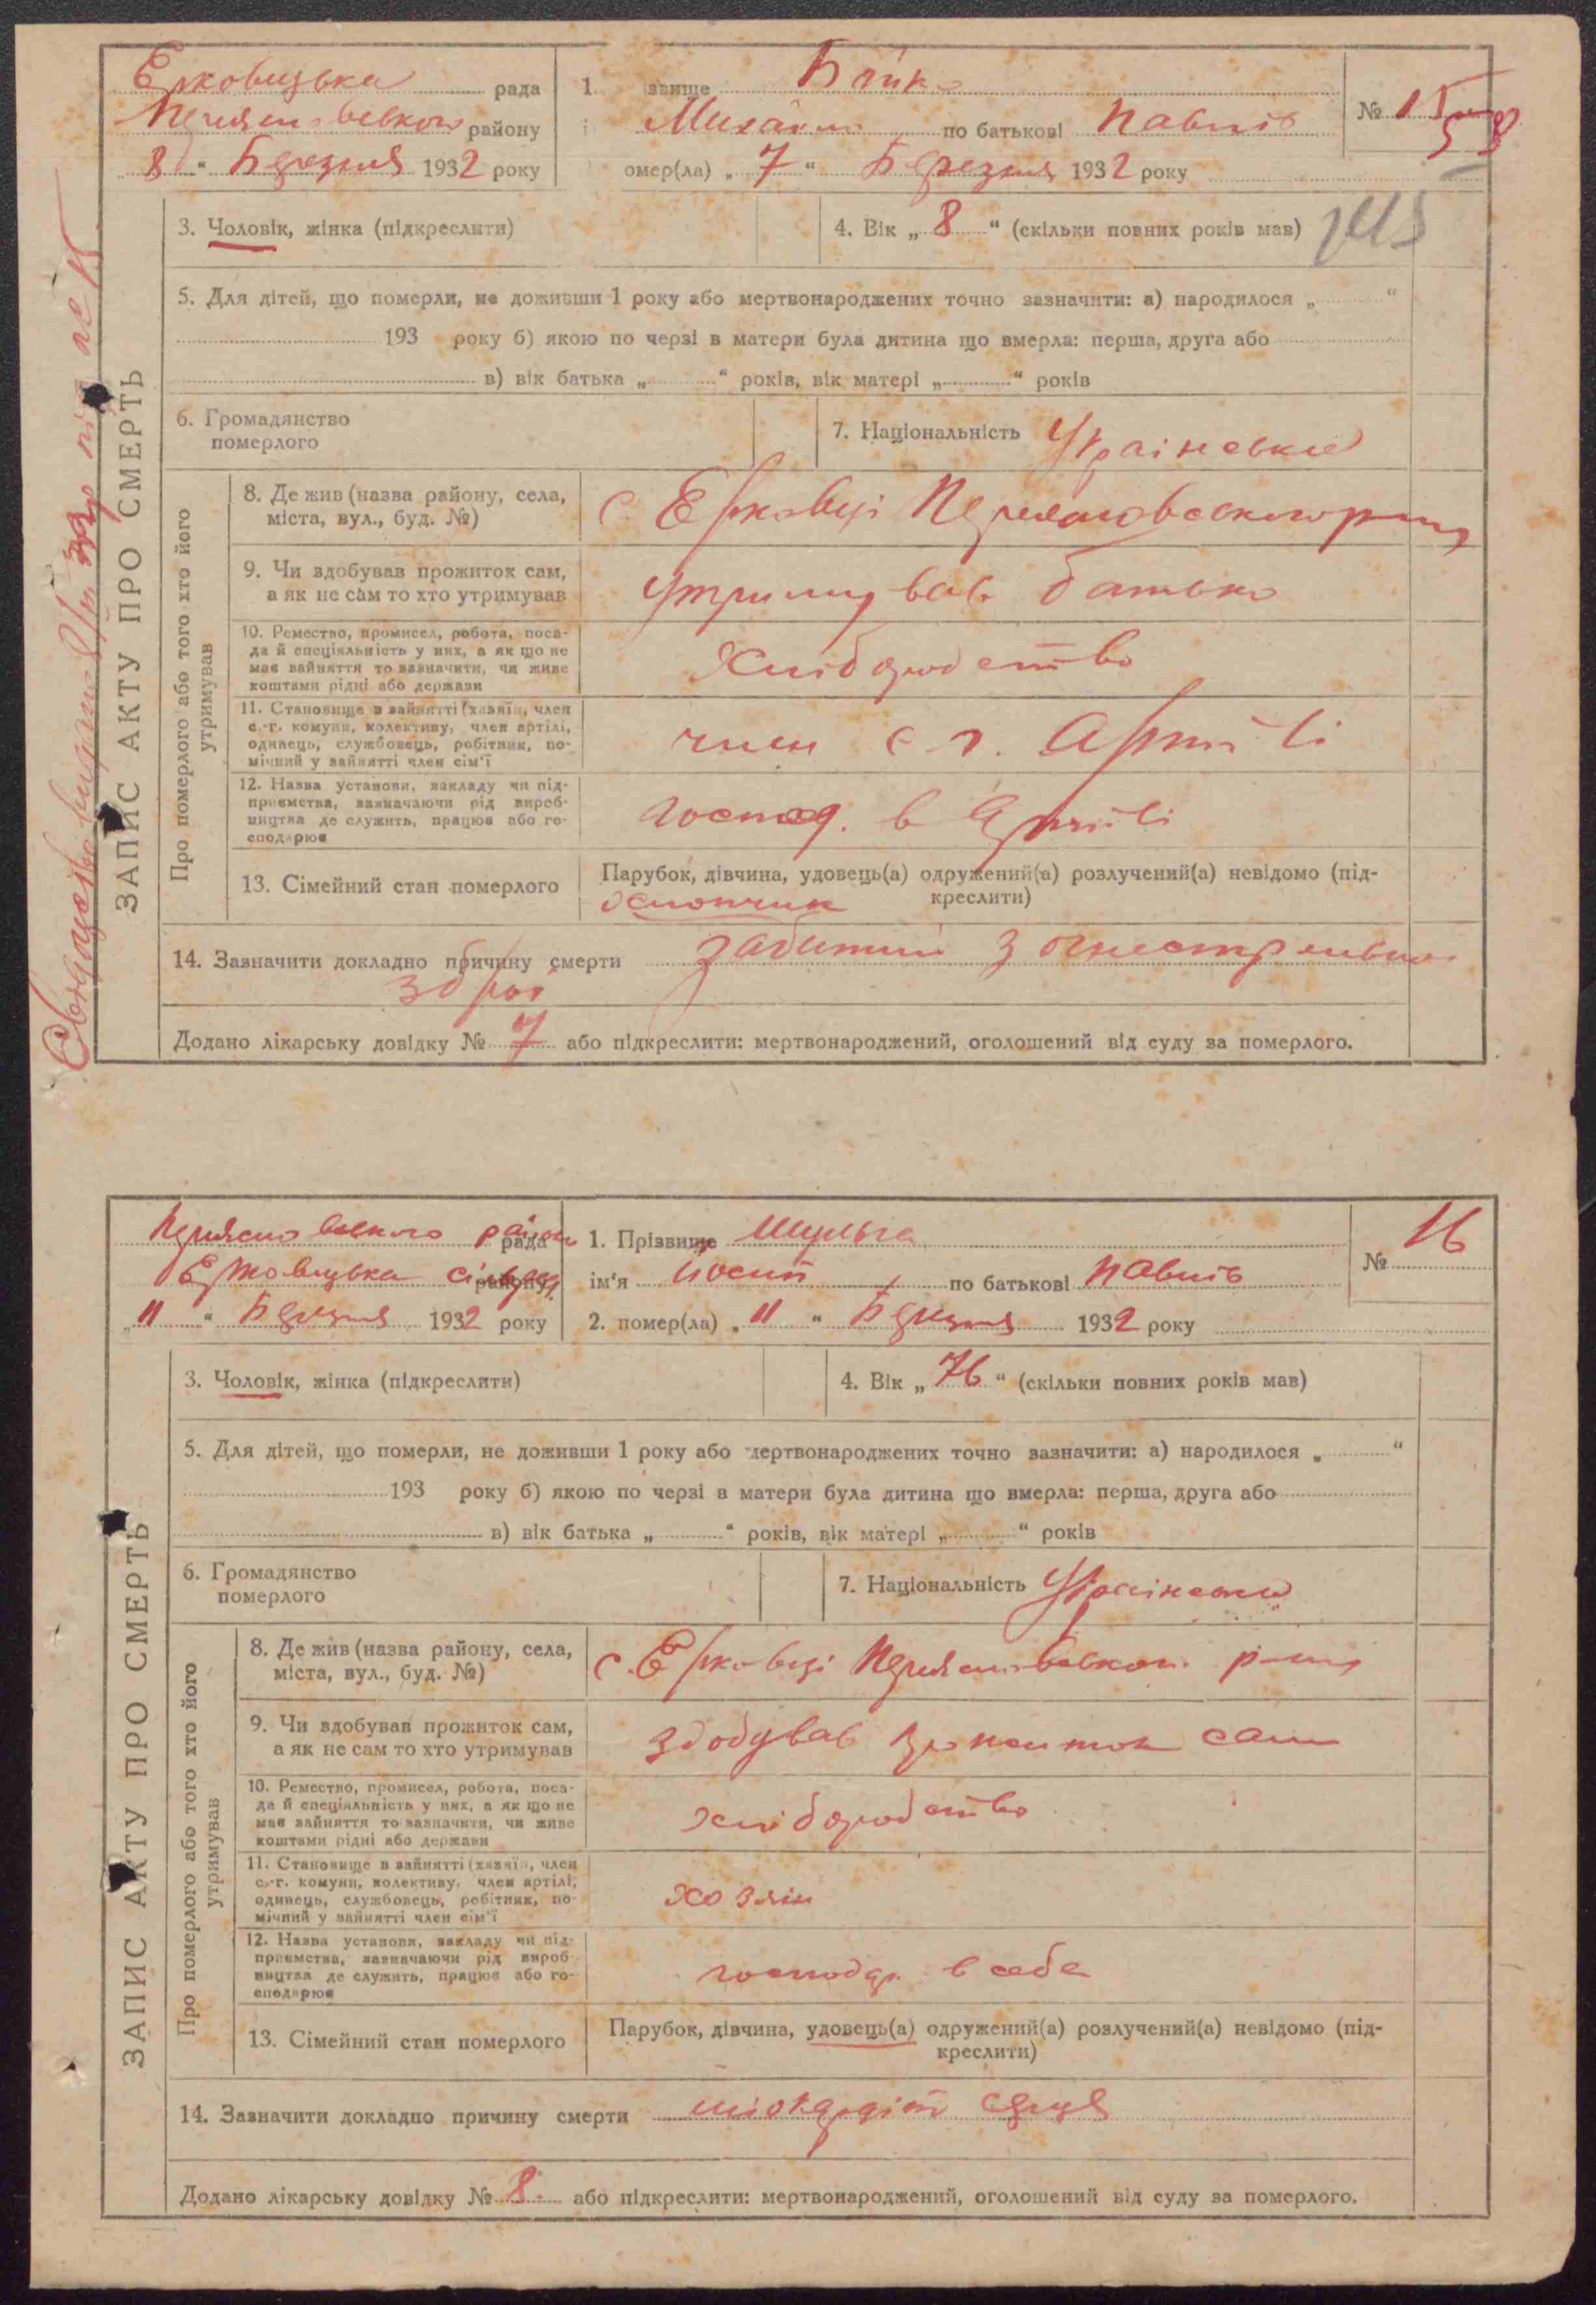 Ерковицька рада
Переяславського району
8 " Березня 1932 року
1. звище Бойко
Михайло по батькові Павлів
омер(ла) „ 7 " Березня 1932 року
№ 15
3. Чоловік, жінка (підкреслити)
4. Вік „ 8 " (скільки повних років мав)
5. Для дітей, що померли, не доживши 1 року або мертвонароджених точно зазначити: а) народилося „ "
193 року б) якою по черзі в матери була дитина що вмерла: перша, друга або
в) вік батька „ " років, вік матері „ " років
6. Громадянство
померлого
7. Національність Українська
ЗАПИС АКТУ ПРО СМЕРТЬ
Про померлого або того хто його
утримував
8. Де жив (назва району, села,
міста, вул., буд. №)
с. Ерковці Переяславського р-ну
9. Чи здобував прожиток сам,
а як не сам то хто утримував
утримував батько
10. Ремество, промисел, робота, поса-
да й спеціяльність у них, а як що не
має зайняття то зазначити, чи живе
коштами рідні або держави
Хліборобство
11. Становище в зайнятті (хазяїн, член
с.-г. комуни, колективу, член артілі,
одинець, службовець, робітник, по-
мічний у зайнятті член сім'ї
член с г. Артілі
12. Назва установи, закладу чи під-
приємства, зазначаючи рід вироб-
ництва де служить, працює або го-
сподарює
господ. в Артілі
13. Сімейний стан померлого
Парубок, дівчина, удовець(а) одружений(а) розлучений(а) невідомо (під-
креслити)
хлопчик
14. Зазначити докладно причину смерти забитий з огнестрельної
зброї
Додано лікарську довідку № 7 або підкреслити: мертвонароджений, оголошений від суду за померлого.
Переяславського район рада
Ерковицька сільрада району
„ 11 " Березня 1932 року
1. Прізвище Шульга
ім'я Йосип по батькові Павлів
2. помер(ла) „ 11 " Березня 1932 року
№ 16
3. Чоловік, жінка (підкреслити)
4. Вік „ 76 " (скільки повних років мав)
5. Для дітей, що померли, не доживши 1 року або мертвонароджених точно зазначити: а) народилося „ "
193 року б) якою по черзі в матери була дитина що вмерла: перша, друга або
в) вік батька „ " років, вік матері „ " років
6. Громадянство
померлого
7. Національність Українська
ЗАПИС АКТУ ПРО СМЕРТЬ
Про померлого або того хто його
утримував
8. Де жив (назва району, села,
міста, вул., буд. №)
с. Ерковці Переяславськог. р-ну
9. Чи здобував прожиток сам,
а як не сам то хто утримував
здобував прожиток сам
10. Ремество, промисел, робота, поса-
да й спеціяльність у них, а як що не
має зайняття то зазначити, чи живе
коштами рідні або держави
хліборобство
11. Становище в зайнятті (хазяїн, член
с.-г. комуни, колективу, член артілі,
одинець, службовець, робітник, по-
мічний у зайнятті член сім'ї
хозяїн
12. Назва установи, закладу чи під-
приємства, зазначаючи рід вироб-
ництва де служить, працює або го-
сподарює
господар. в себе
13. Сімейний стан померлого
Парубок, дівчина, удовець(а) одружений(а) розлучений(а) невідомо (під-
креслити)
14. Зазначити докладно причину смерти міокардіт серця
Додано лікарську довідку № 8. або підкреслити: мертвонароджений, оголошений від суду за померлого.